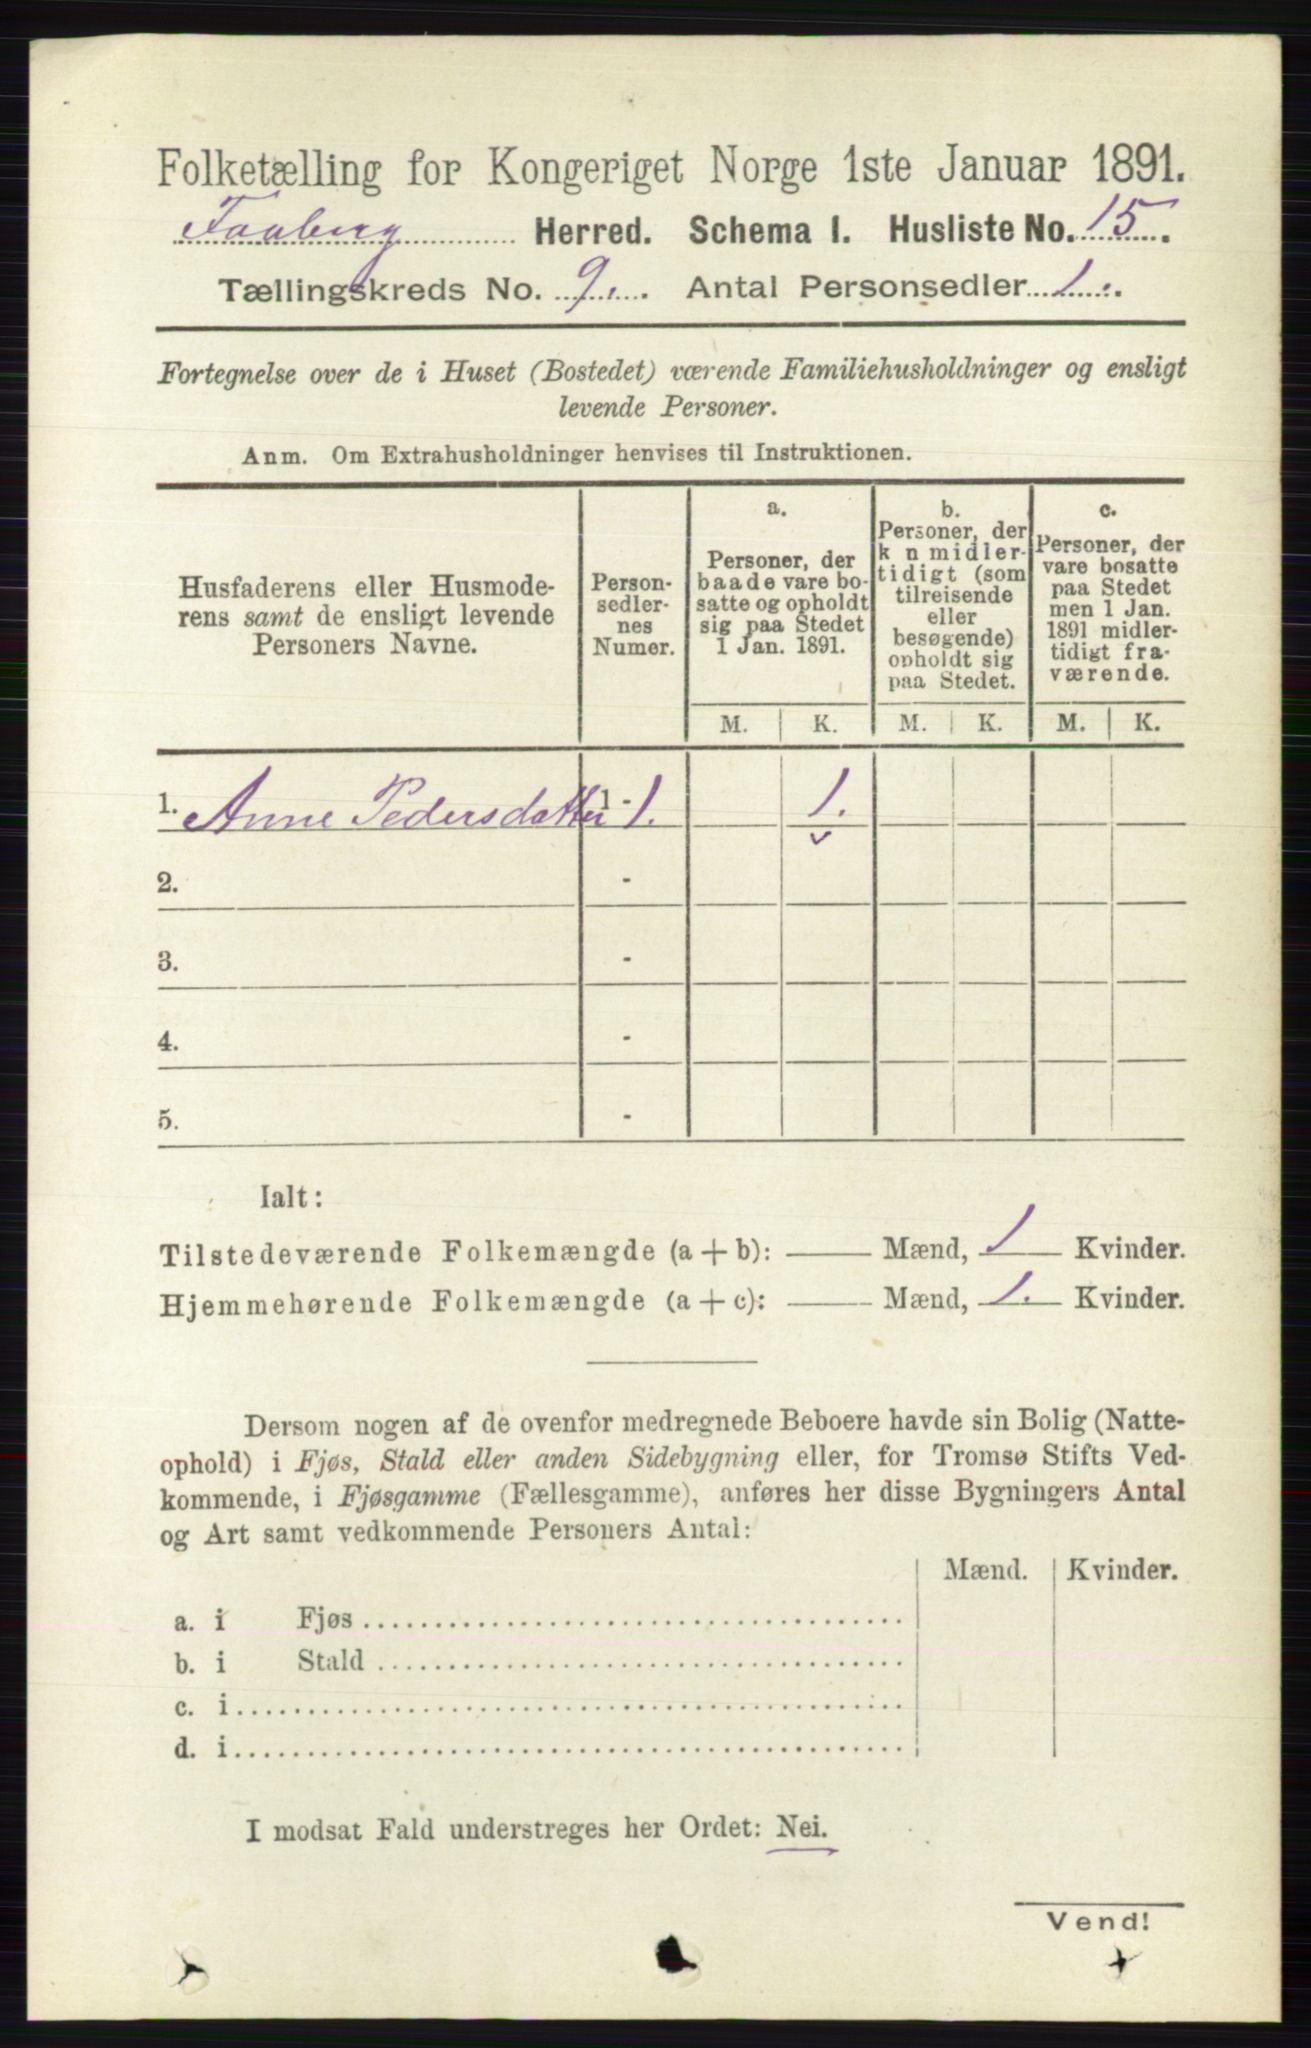 Folketælling for Kongeriget Norge 1ste Januar 1891.
Faaberg Herred. Schema I. Husliste No. 15.
Tællingskreds No. 9. Antal Personsedler 1.
Fortegnelse over de i Huset (Bostedet) værende Familiehusholdninger og ensligt
levende Personer.
Anm. Om Extrahusholdninger henvises til Instruktionen.
Husfaderens eller Husmode-
rens samt de ensligt levende
Personers Navne.
Person-
sedler-
nes
Numer.
a.
Personer, der
baade vare bo-
satte og opholdt
sig paa Stedet
1 Jan. 1891.
b.
Personer, der
k n midler-
tidigt (som
tilreisende
eller
besøgende)
opholdt sig
paa Stedet.
c.
Personer, der
vare bosatte
paa Stedet
men 1 Jan.
1891 midler-
tidigt fra-
værende.
M. K. M. K. M. K.
1. Anne Pedersdatter 1 - 1. 1.
2. -
3. -
4. -
5. -
Ialt:
Tilstedeværende Folkemængde (a + b): Mænd, 1 Kvinder.
Hjemmehørende Folkemængde (a + c): Mænd, 1. Kvinder.
Dersom nogen af de ovenfor medregnede Beboere havde sin Bolig (Natte-
ophold) i Fjøs, Stald eller anden Sidebygning eller, for Tromsø Stifts Ved-
kommende, i Fjøsgamme (Fællesgamme), anføres her disse Bygningers Antal
og Art samt vedkommende Personers Antal:
Mænd. Kvinder.
a. i Fjøs
b. i Stald
c. i
d. i
I modsat Fald understreges her Ordet: Nei.
Vend!